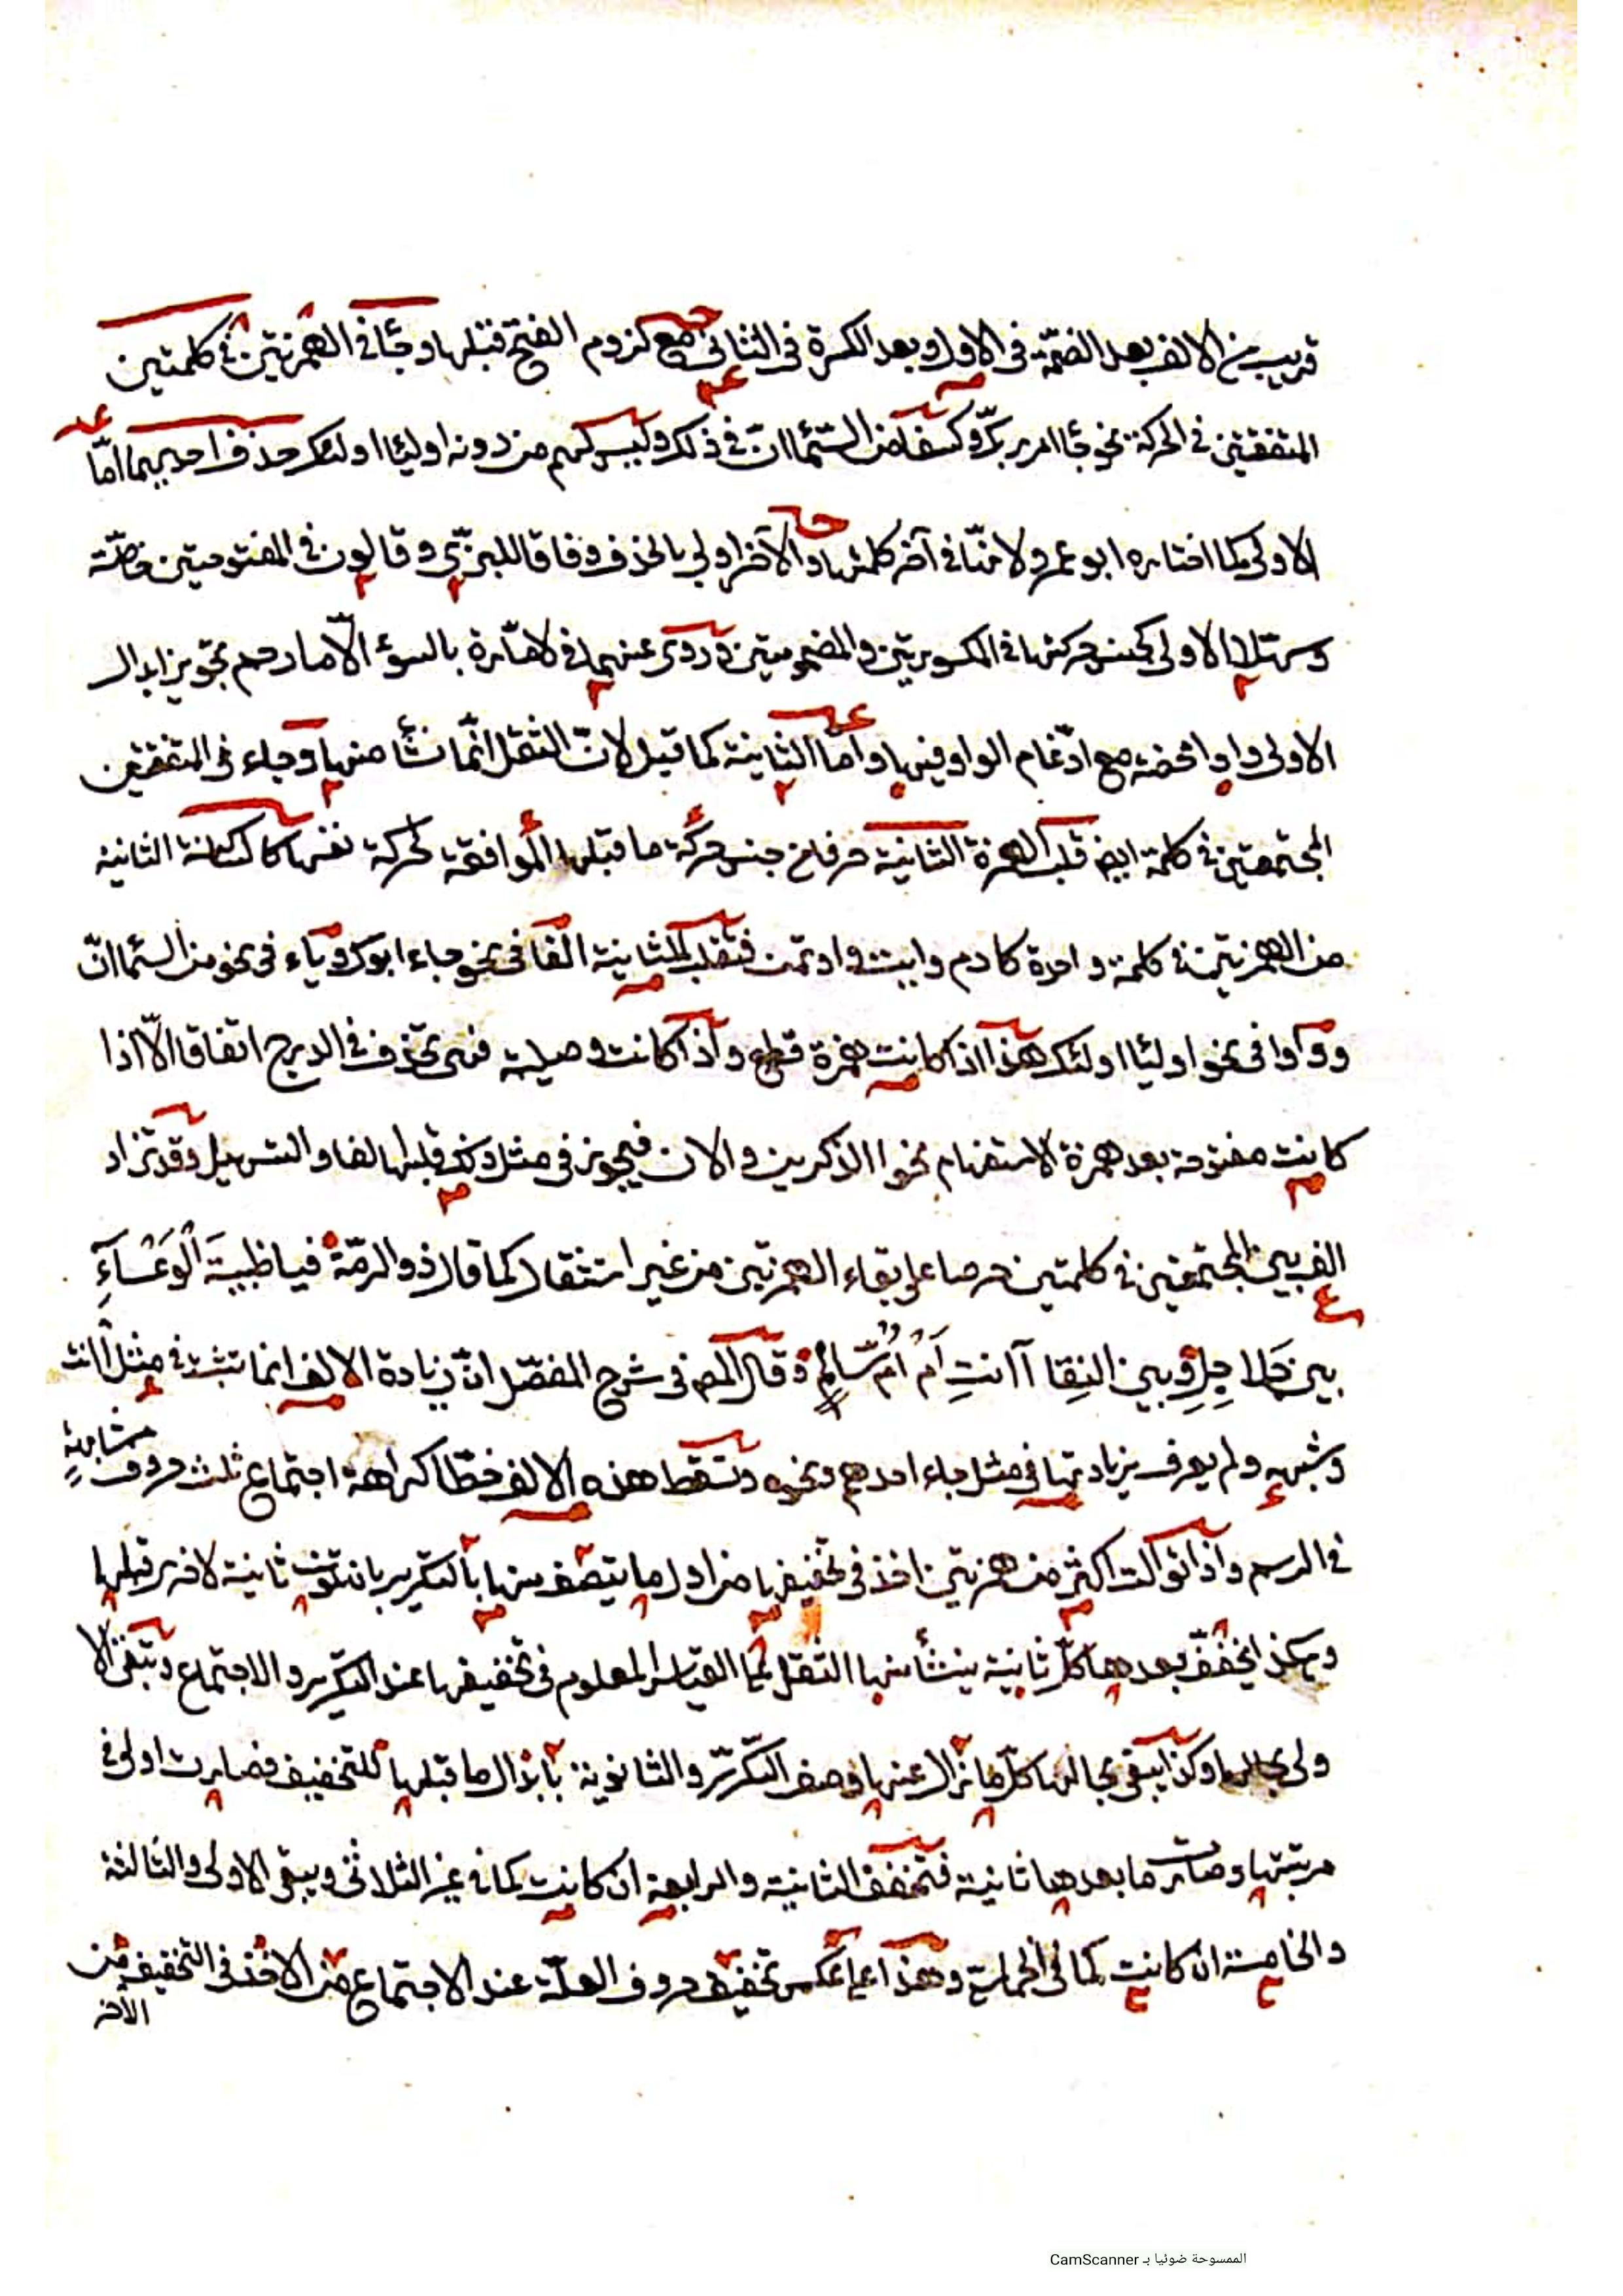 قريب من الالف بعد الضمّة في الاول وبعد الكسرة في الثاني مع لزوم الفتح قبلها وجاء في الهمزتين في كلمتين
المتفقتين في الحركة نحو جاا امر ربك وكسفا من السماا ان في ذلك وليس لهم من دونه اوليا اولئك حذف احديهما امّا
الاولى كما اختاره ابو عمرو لانّها في آخر كلمتها والآخر اولى بالحذف وفاقا للبزّي وقالون في المفتوحتين خاصّة
وسهّلا الاولى كجنس حركتها في المكسورتين والمضمومتين وروي عنهما في لامّارة بالسوء الّا ما رحم تجويز ابدال
الاولى واوا محضة مع ادّغام الواو فيها وامّا الثانية كما قيل لانّ الثقل انّما نشأ منها وجاء في المتفقتين
المجتمعتين في كلمة ايضا قلب الهمزة الثانية حرفا من جنس حركة ما قبلها الموافقة لحركة نفسها كالساكنة الثانية
من الهمزتين في كلمة واحدة كادم وايت واوتمن فتقلب الثانية الفا في نحو جاء ابوك وياء في نحو من السماا انّ
وواوا في نحو اوليا اولئك هذا اذا كانت همزة قطع واذا كانت وصلية فهى تحذف في الدرج اتفاقا الّا اذا
كانت مفتوحة بعد همزة الاستفهام نحو االذكرين والان فيجوز في مثل ذلك قلبها الفا والتسهيل وقد تزاد
الف بين المجتمعتين في كلمتين حرصا على بقاء الهمزتين من غير استثقال كما قال ذو الرمّة فيا ظبيةَ الْوَعْسَآءِ
بين جَلاجِلٍ وبين النِقا آ انتِ اَمْ اُمُّ سَالِمٍ وقال المص في شرح المفصّل انّ زيادة الالف انما تثبت في مثل أانت
وشبهه ولم يعرف زيادتها في مثل جاء احدهم ونحوه وتسقط هذه الالف خطا كراهة اجتماع ثلث حروف متشابهة
في الرسم واذا توالت اكثر من همزتين اخذ في تخفيفها من اول ما يتصف منها بالتكرير بان تكون ثانية لاخرى قبلها
وهكذا يخفّف بعدها كلّ ثانية ينشأ منها الثقل كما القياس المعلوم في تخفيفها عند التكرير والاجتماع وتبقى الا
ولى بحالها وكذا يبقى بحالها كلّ ما زال عنها وصف التكرّر والثانوية بابدال ما قبلها للتخفيف فصارت اولى في
مرتبتها وصارت ما بعدها ثانية فتخفف الثانية والرابعة ان كانت كما في غير الثلاثى ويبقى الاولى والثالثة
والخامسة ان كانت كما في الخماسيّ وهذا على عكس تخفيف حروف العلّة عند الاجتماع من الاخذ في التخفيف من
الأخر
الممسوحة ضوئيا بـ CamScanner